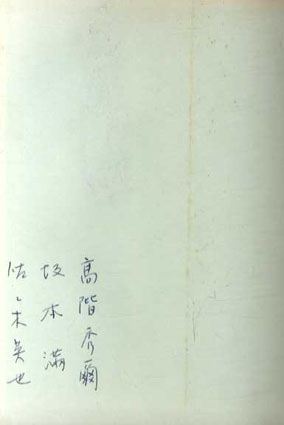 高階秀爾
坂本満
佐々木英也